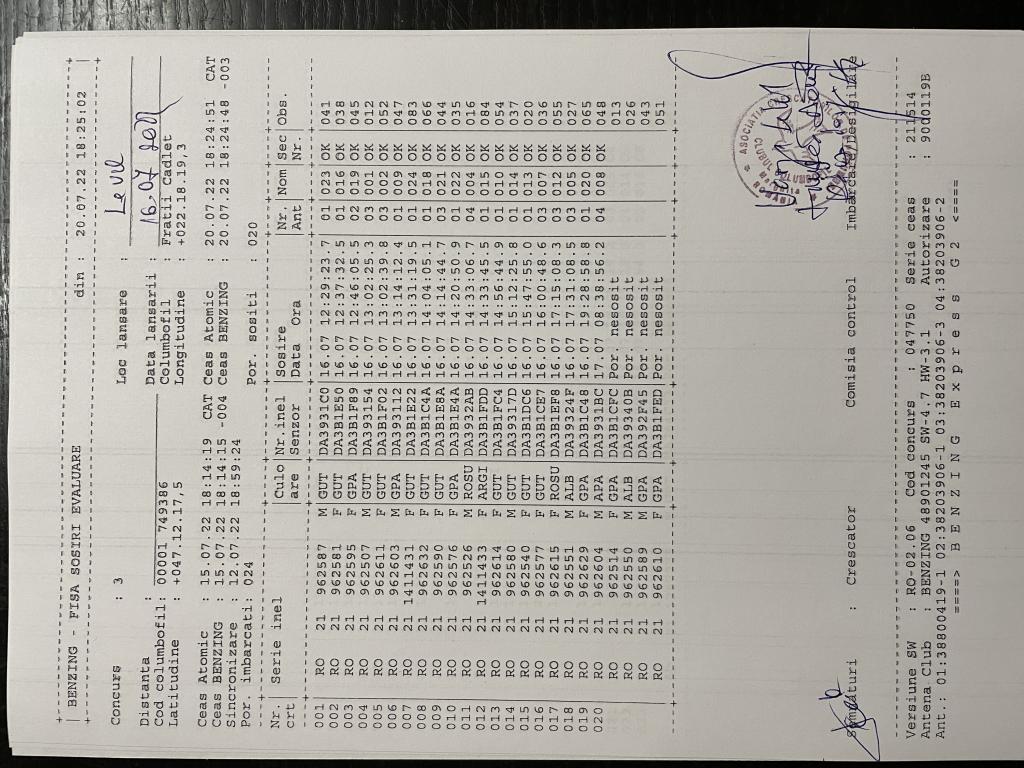 BENZING - FISA SOSIRI EVALUARE din : 20.07.22 18:25:02
Concurs : 3 Loc lansare :
Distanta : Data lansarii : 16.07
Cod columbofil: 00001 749386 Columbofil : Fratii Cadlet
Latitudine : +047.12.17,5 Longitudine : +022.18.19,3
Ceas Atomic : 15.07.22 18:14:19 CAT Ceas Atomic : 20.07.22 18:24:51 CAT
Ceas BENZING : 15.07.22 18:14:15 -004 Ceas BENZING : 20.07.22 18:24:48 -003
Sincronizare : 12.07.22 18:59:24
Por. imbarcati: 024 Por. sositi : 020
Nr. | Serie inel | Culo | Nr.inel | Sosire | Nr. | Nom | Sec | Obs.
crt | | are | Senzor | Data Ora | Ant | | Nr |
001 RO 21 962587 M GUT DA3931C0 16.07 12:29:23.7 01 023 OK 041
002 RO 21 962581 F GUT DA3B1E50 16.07 12:37:32.5 01 016 OK 038
003 RO 21 962595 F GPA DA3B1F89 16.07 12:46:05.5 02 019 OK 045
004 RO 21 962507 M GUT DA393154 16.07 13:02:25.3 03 001 OK 012
005 RO 21 962611 F GUT DA3B1F02 16.07 13:02:39.8 03 002 OK 052
006 RO 21 962603 M GPA DA393112 16.07 13:14:12.4 01 009 OK 047
007 RO 21 1411431 F GUT DA3B1E22 16.07 13:31:19.5 01 024 OK 083
008 RO 21 962632 F GUT DA3B1C4A 16.07 14:04:05.1 01 018 OK 066
009 RO 21 962590 F GUT DA3B1E8A 16.07 14:14:44.7 03 021 OK 044
010 RO 21 962576 F GPA DA3B1E4A 16.07 14:20:50.9 01 022 OK 035
011 RO 21 962526 M ROSU DA3932AB 16.07 14:33:06.7 04 004 OK 016
012 RO 21 1411433 F ARGI DA3B1FDD 16.07 14:33:45.5 01 015 OK 084
013 RO 21 962614 F GUT DA3B1FC4 16.07 14:56:44.9 01 010 OK 054
014 RO 21 962580 M GUT DA39317D 16.07 15:12:25.8 01 014 OK 037
015 RO 21 962540 F GUT DA3B1DC6 16.07 15:47:55.0 01 013 OK 020
016 RO 21 962577 F GUT DA3B1CE7 16.07 16:00:48.6 03 007 OK 036
017 RO 21 962615 F ROSU DA3B1EF8 16.07 17:15:08.3 03 012 OK 055
018 RO 21 962551 M ALB DA39324F 16.07 17:31:08.5 03 005 OK 027
019 RO 21 962629 F GPA DA3B1C48 16.07 19:28:58.8 01 020 OK 065
020 RO 21 962604 M APA DA3931BC 17.07 08:38:56.2 04 008 OK 048
RO 21 962514 F GPA DA3B1CFC Por. nesosit 013
RO 21 962550 M ALB DA39340B Por. nesosit 026
RO 21 962589 M GPA DA392F45 Por. nesosit 043
RO 21 962610 F GPA DA3B1FED Por. nesosit 051
ASOCIATIA
Semnaturi : Crescator Comisia control Imbarcare/Desigilare
Versiune SW : RO-02.06 Cod concurs : 047750 Serie ceas : 217514
Antena Club : BENZING 48901245 SW-4.7 HW-3.1 Autorizare : 9000119B
Ant.: 01:38800419-1 02:38203906-1 03:38203906-3 04:38203906-2
====> B E N Z I N G E x p r e s s G 2 <====